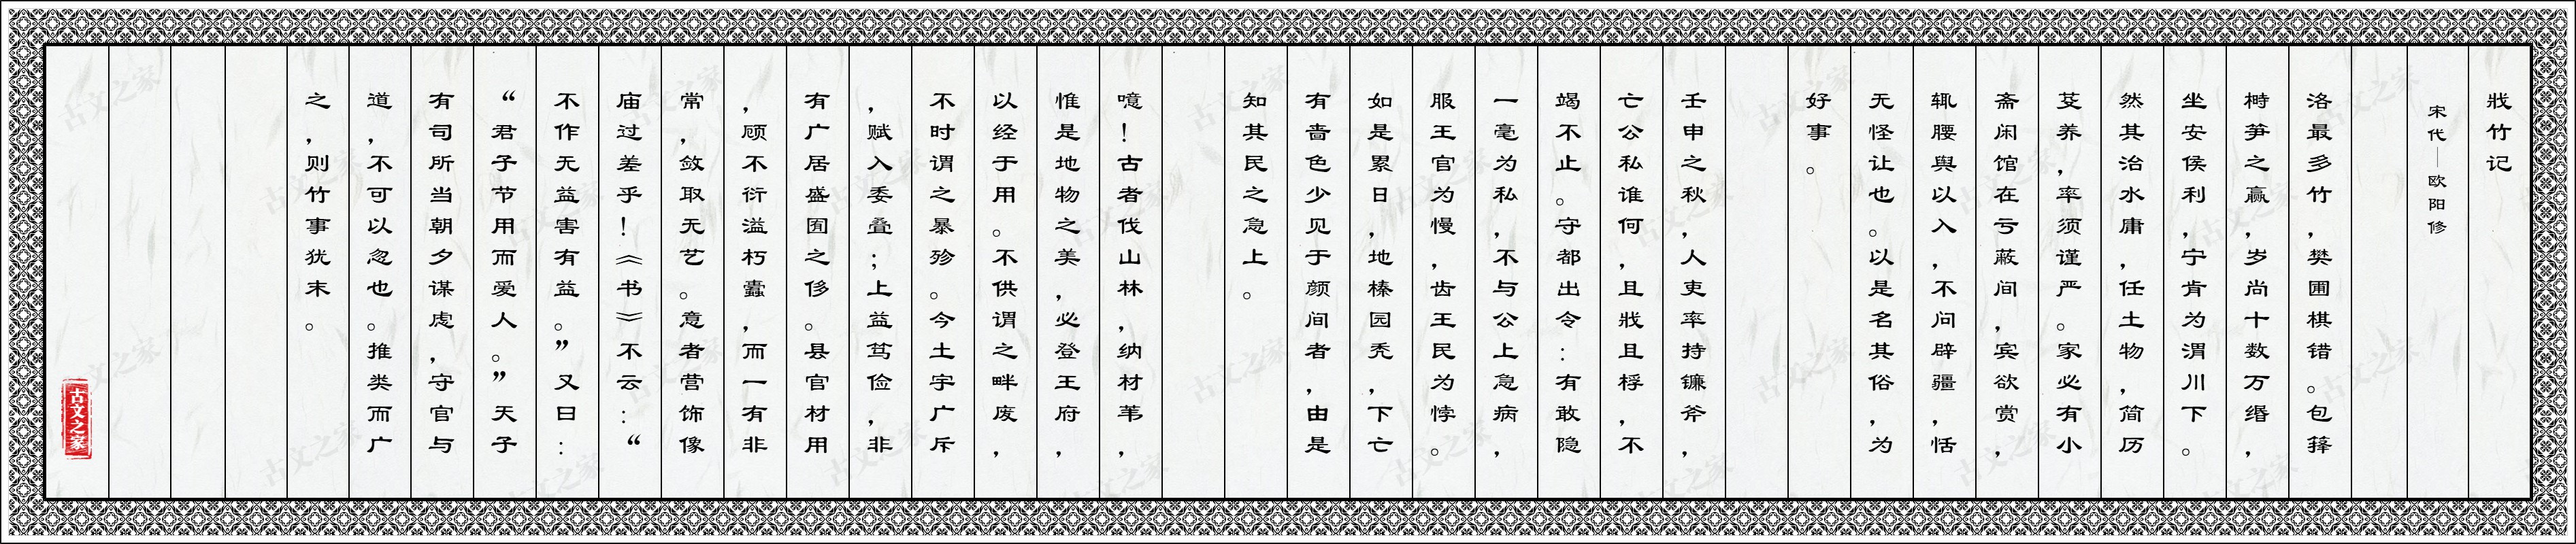 戕竹记
宋代——欧阳修
洛最多竹，樊圃棋错。包箨
榯笋之赢，岁尚十数万缗，
坐安侯利，宁肯为渭川下。
然其治水庸，任土物，简历
芟养，率须谨严。家必有小
斋闲馆在亏蔽间，宾欲赏，
辄腰舆以入，不问辟疆，恬
无怪让也。以是名其俗，为
好事。
壬申之秋，人吏率持镰斧，
亡公私谁何，且戕且桴，不
竭不止。守都出令：有敢隐
一毫为私，不与公上急病，
服王官为慢，齿王民为悖。
如是累日，地榛园秃，下亡
有啬色少见于颜间者，由是
知其民之急上。
噫！古者伐山林，纳材苇，
惟是地物之美，必登王府，
以经于用。不供谓之畔废，
不时谓之暴殄。今土宇广斥
，赋入委叠；上益笃俭，非
有广居盛囿之侈。县官材用
，顾不衍溢朽蠹，而一有非
常，敛取无艺。意者营饰像
庙过差乎！《书》不云：“
不作无益害有益。”又曰：
“君子节用而爱人。”天子
有司所当朝夕谋虑，守官与
道，不可以忽也。推类而广
之，则竹事犹末。
古文之家